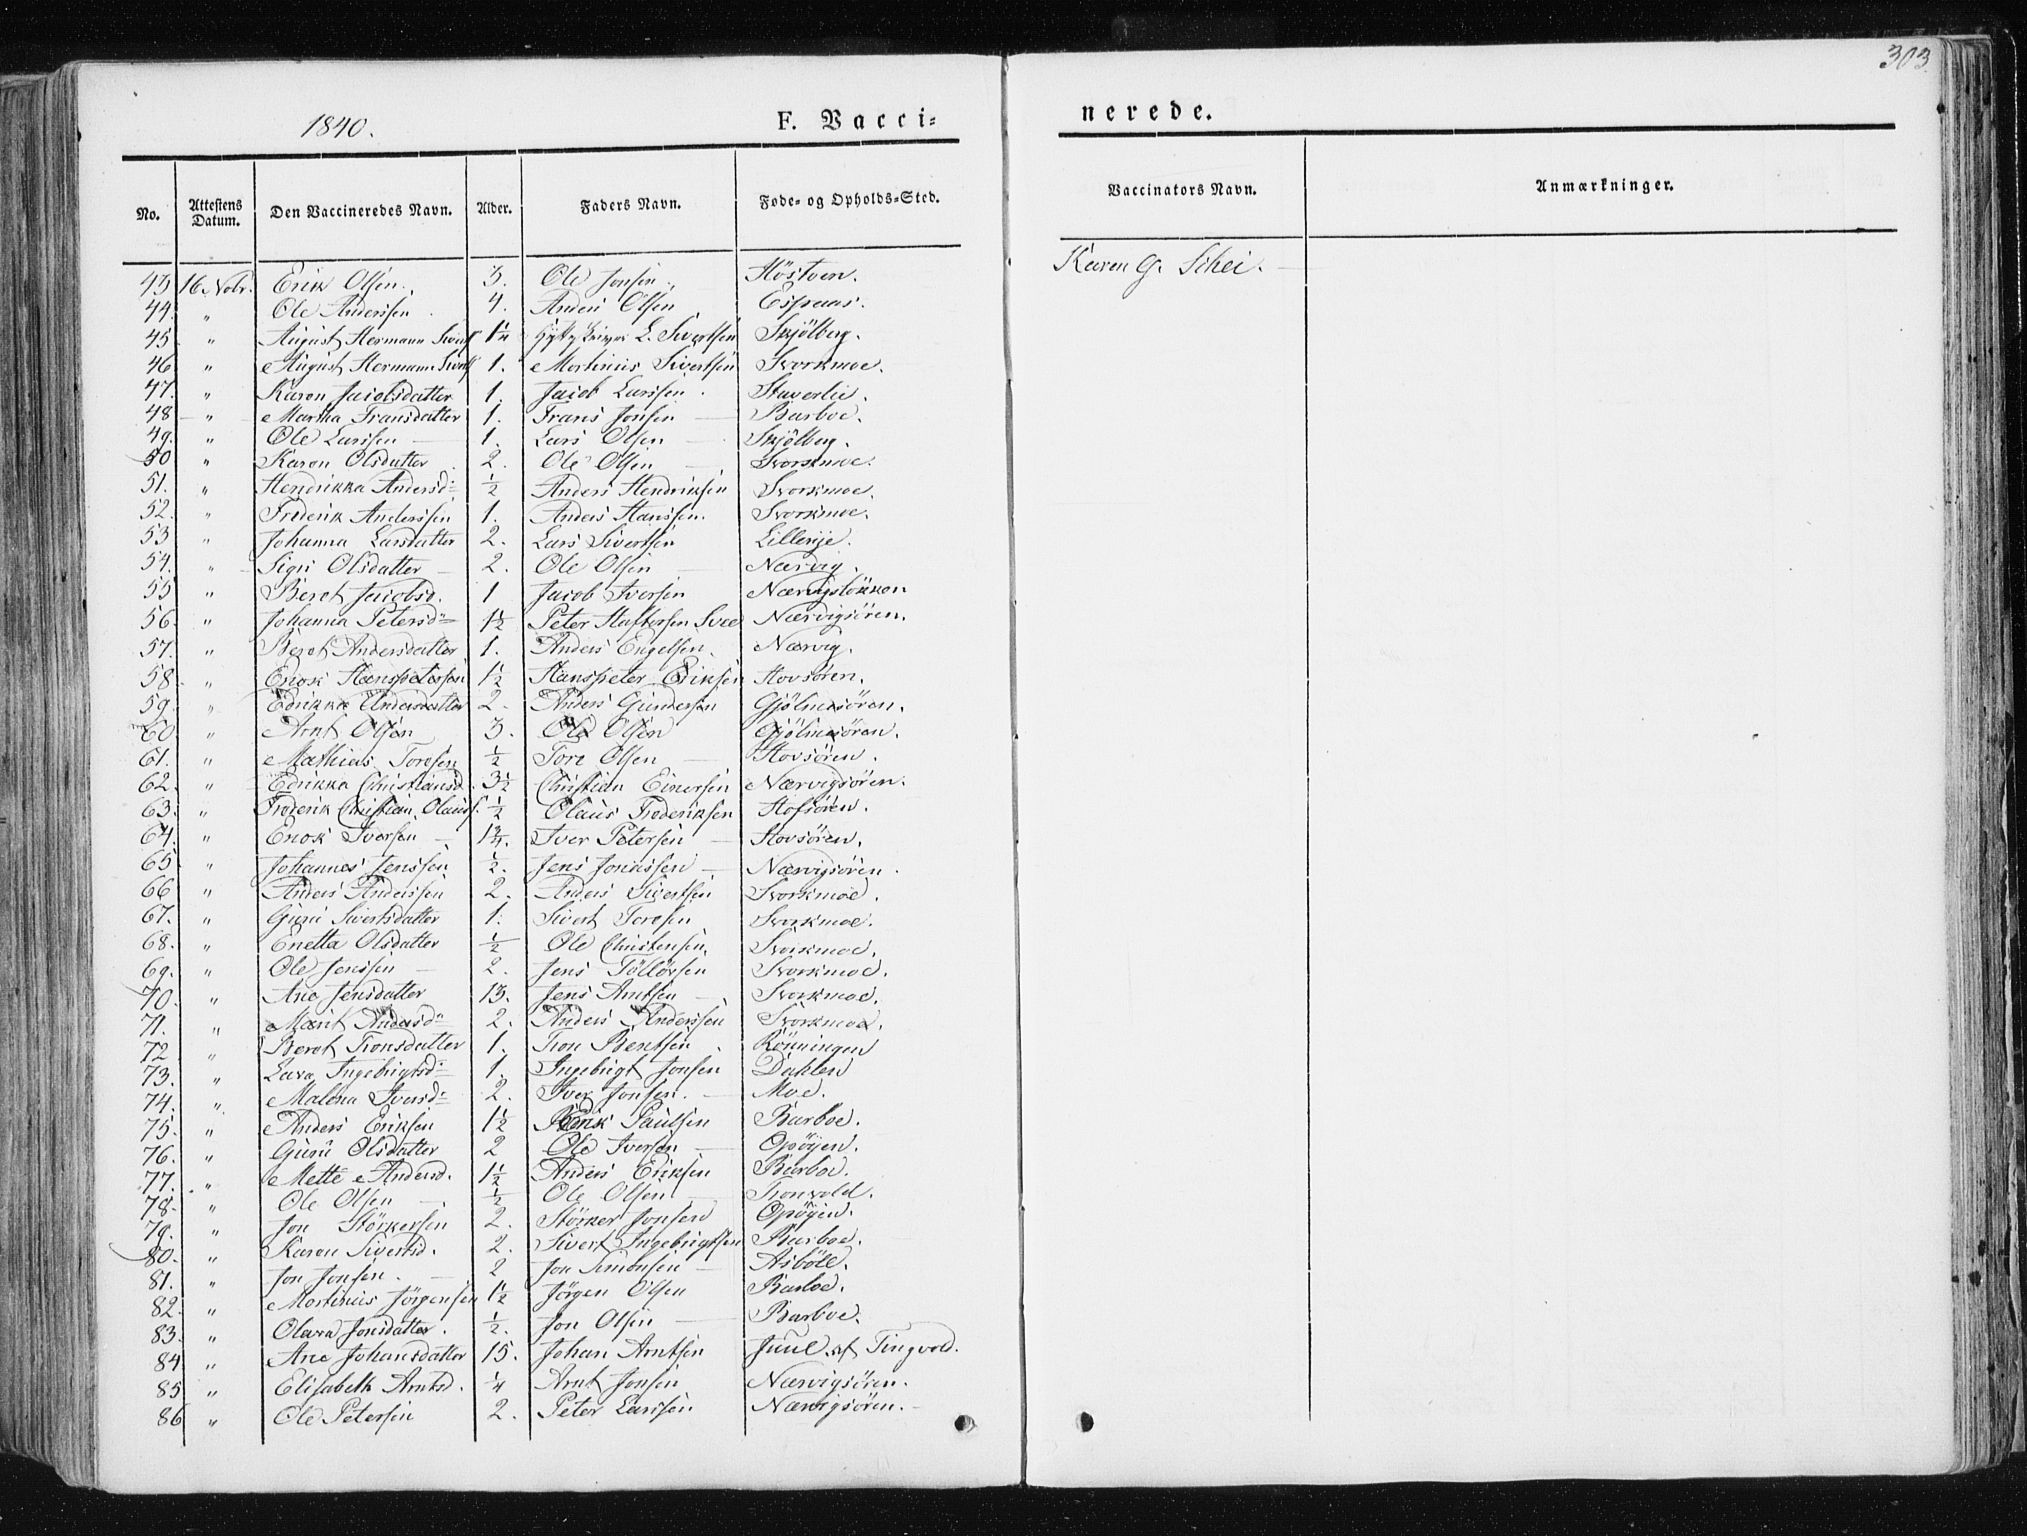 303
1840. F. Vacci= nerede.
No. Attestens Datum. Den Vaccineredes Navn. Alder. Faders Navn. Føde- og Opholds-Sted. Vaccinators Navn. Anmærkninger.
43 16 Nobr. Erik Olsen. 3. Ole Jonsen. Höstoen. Karen G. Schei.
44 " Ole Anderssen 4. Anders Olsen Espaas.
45 " August Hermann 1½ L. Sivertsen Skjölberg.
46 " August Hermann 1. Mortinius Sivertsen Svorkmoe.
47. " Karen Jacobsdatter 1. Jacob Larssen. Staverlie.
48 " Martha Fransdatter 1. Frans Jonsen Barboe.
49. " Ole Larssen 1. Lars Olsen Skjölberg.
50 " Karen Olsdatter 2. Ole Olsen Svorkmoe.
51. " Hendrikka Andersd: ½ Anders Hendriksen Svorkmoe.
52. " Frederik Anderssen 1. Anders Hanssen. Svorkmoe.
53 " Johanna Larsdatter 2. Lars Sivertsen Lilleeije.
54. " Sigri Olsdatter 2. Ole Olsen Nærvig.
55 " Beret Jacobsd. 1 Jacob Iversen Nærvigslökken
56 " Johanna Petersd= 1½ Peter Nærvigsören.
57. " Beret Andersdatter 1. Anders Engelsen. Nærvig.
58 " Enok Hanspetersen 1½ Hanspeter Eriksen Hovsören.
59. " Edrikka Andersdatter 2. Anders Gundersen Gjölmesören.
60 " Arnt Olsen 3. Ole Olsen Gjölmesören.
61. " Mathias Toresen ½ Tore Olsen Hovsören.
62. " Edrikka Christiansd. 3½ Christian Einersen Nærvigsören.
63. " Frederik Christian Olauss. ½ Olaus Frederiksen Hofsören.
64. " Enok Iversen 1¾. Iver Petersen Hovsören.
65 " Johannes Jenssen ½. Jens Jonassen Nærvigsören.
66 " Anders Anderssen 2. Anders Sivertsen Svorkmoe.
67. " Guru Sivertsdatter 1. Sivert Toresen Svorkmoe.
68. " Enetta Olsdatter ½ Ole Christensen. Svorkmoe.
69. " Ole Jenssen 2. Jens Töllefsen Svorkmoe.
70. " Ane Jensdatter 13. Jens Arntsen Svorkmoe.
71. " Marit Andersd= 2. Anders Anderssen Svorkmoe.
72 " Beret Tronsdatter 1. Tron Bentsen Rönningen
73. " Lava Ingebrigtsd= 1. Ingebrigt Jonsen Dahlen
74. " Malena Iversd= 2. Iver Jonsen. Moe.
75. " Anders Eriksen 1½ Erik Paulsen Barboe.
76. " Guru Olsdatter 2 Ole Iversen Opöijen.
77. " Mette Andersd. 1½ Anders Eriksen Barboe.
78. " Ole Olsen ½ Ole Olsen Tronvold.
79. " Jon Störkersen 2. Störker Jonsen Opöijen.
80. " Karen Sivertsd. 2. Sivert Ingebrigtsen Barboe.
81. " Jon Jonsen. 2 Jon Simonsen Asböle.
82. " Mortinius Jörgensen 1½ Jörgen Olsen Barboe.
83. " Olava Jonsdatter. ½. Jon Olsen Barboe.
84 " Ane Johansdatter 15. Johan Arntsen Juul af Tingvold.
85 " Elisabeth Arntsd. ¼ Arnt Jonsen Nærvigsören.
86 " Ole Petersen 2. Peter Larssen Nærvigsören.